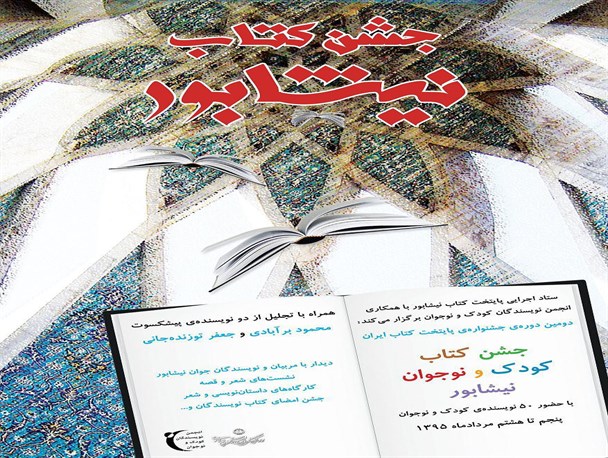 جشن کتاب
نیشابور
ستاد اجرایی پایتخت کتاب نیشابور با همکاری
انجمن نویسندگان کودک و نوجوان برگزار می‌کند:
دومین دوره‌ی جشنواره‌ی پایتخت کتاب ایران
جشن کتاب
کودک و نوجوان
نیشابور
با حضور ۵۰ نویسنده‌ی کودک و نوجوان
پنجم تا هشتم مردادماه ۱۳۹۵
همراه با تجلیل از دو نویسنده‌ی پیشکسوت
محمود برآبادی و جعفر توزنده‌جانی
دیدار با مربیان و نویسندگان جوان نیشابور
نشست‌های شعر و قصه
کارگاه‌های داستان‌نویسی و شعر
جشن امضای کتاب نویسندگان و...
انجمن
نویسندگان
کودک و
نوجوان